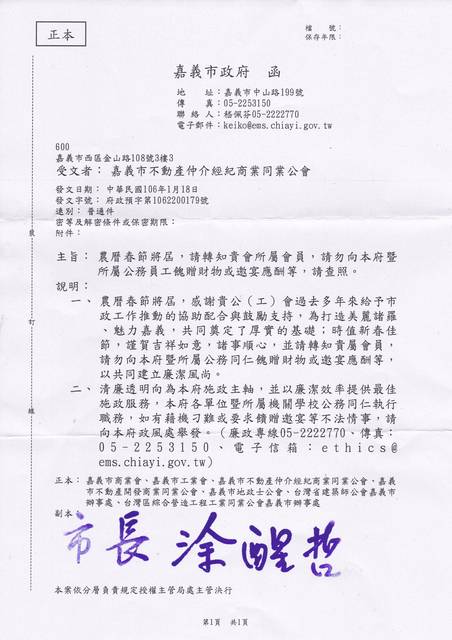 檔　號：
保存年限：
正本
嘉義市政府　函
地　　址：嘉義市中山路199號
傳　　真：05-2253150
聯 絡 人：嵇佩芬05-2222770
電子郵件：keiko@ems.chiayi.gov.tw
600
嘉義市西區金山路108號3樓3
受文者：嘉義市不動產仲介經紀商業同業公會
發文日期：中華民國106年1月18日
發文字號：府政預字第1062200179號
速別：普通件
密等及解密條件或保密期限：
附件：
主旨：農曆春節將屆，請轉知貴會所屬會員，請勿向本府暨
所屬公務員工餽贈財物或邀宴應酬等，請查照。
說明：
一、農曆春節將屆，感謝貴公（工）會過去多年來給予市
政工作推動的協助配合與鼓勵支持，為打造美麗諸羅
、魅力嘉義，共同奠定了厚實的基礎；時值新春佳
節，謹賀吉祥如意，諸事順心，並請轉知貴屬會員，
請勿向本府暨所屬公務同仁餽贈財物或邀宴應酬等，
以共同建立廉潔風尚。
二、清廉透明向為本府施政主軸，並以廉潔效率提供最佳
施政服務，本府各單位暨所屬機關學校公務同仁執行
職務，如有藉機刁難或要求饋贈邀宴等不法情事，請
向本府政風處舉發。（廉政專線05-2222770、傳真：
05-2253150、電子信箱：ethics@
ems.chiayi.gov.tw）
正本：嘉義市商業會、嘉義市工業會、嘉義市不動產仲介經紀商業同業公會、嘉義
市不動產開發商業同業公會、嘉義市地政士公會、台灣省建築師公會嘉義市
辦事處、台灣區綜合營造工程工業同業公會嘉義市辦事處
副本：
市長 涂醒哲
本案依分層負責規定授權主管局處主管決行
第1頁　共1頁
裝
訂
線